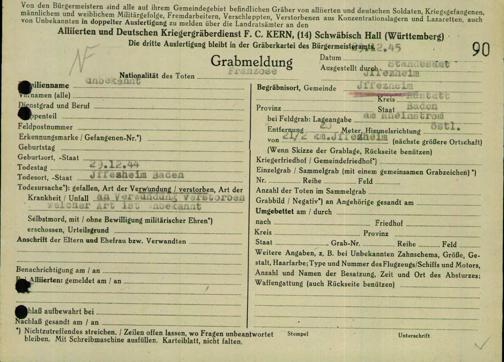 Von den Bürgermeistern sind alle auf ihrem Gemeindegebiet befindlichen Gräber von alliierten und deutschen Soldaten, Kriegsgefangenen,
männlichen u. weiblichem Militärgefolge, Fremdarbeitern, Verschleppten, Verstorbenen aus Konzentrationslagern und Lazaretten, auch
von Unbekannten in doppelter Ausfertigung zu melden über die Landratsämter an den
Alliierten und Deutschen Kriegergräberdienst F. C. KERN, (14) Schwäbisch Hall (Württemberg)
Die dritte Ausfertigung bleibt in der Gräberkartei des Bürgermeisteramts
.45
90
NF
Grabmeldung
Datum
Nationalität des Toten Franzose
Ausgestellt durch Standesamt
Iffezheim
Familienname unbekannt
Vornamen (alle)
Dienstgrad und Beruf
Truppenteil
Feldpostnummer
Erkennungsmarke / Gefangenen-Nr.*)
Geburtstag
Geburtsort, -Staat
Todestag 29.12.44
Todesort, -Staat Iffezheim Baden
Todesursache*): gefallen, Art der Verwundung / verstorben, Art der
Krankheit / Unfall an Verwundung verstorben
welcher Art ist unbekannt
Selbstmord, mit / ohne Bewilligung militärischer Ehren*)
erschossen, Urteilsgrund
Anschrift der Eltern und Ehefrau bzw. Verwandten
Benachrichtigung am / an
Bei Alliierten: gemeldet am / an
Nachlaß aufbewahrt bei
Nachlaß gesandt am / an
*) Nichtzutreffendes streichen. / Zeilen offen lassen, wo Fragen unbeantwortet
bleiben. Mit Schreibmaschine ausfüllen. Karteiblatt, nicht falten.
Begräbnisort, Gemeinde Iffezheim
Kreis Rastatt
Provinz Staat Baden
bei Feldgrab: Lageangabe am Rheinstrom
Entfernung 25 Meter, Himmelsrichtung östl.
von 21/2 km.Iffezheim (nächste größere Ortschaft)
(Wenn Skizze der Grablage, Rückseite benützen)
Kriegerfriedhof / Gemeindefriedhof*)
Einzelgrab / Sammelgrab (mit einem gemeinsamen Grabzeichen) *)
Nr. Reihe Feld
Anzahl der Toten im Sammelgrab
Grabbild / Negativ*) an Angehörige gesandt am
Umgebettet am / durch
nach Friedhof
Kreis Provinz
Staat Grab-Nr. Reihe Feld
Weitere Angaben, z. B. bei Unbekannten Zahnschema, Größe, Ge-
stalt, Haarfarbe; Type und Nummer des Flugzeugs/Schiffs und Motors,
Anzahl und Namen der Besatzung, Zeit und Ort des Absturzes:
Waffengattung (auch Rückseite benützen)
Stempel Unterschrift